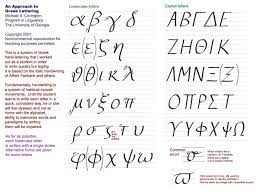 An Approach to
Greek Lettering
Michael A. Covington
Program in Linguistics
The University of Georgia
Copyright 2003
Noncommercial reproduction for
teaching purposes permitted.
This is a system of Greek
hand-lettering that I worked
out as a student in order
to write quickly but clearly.
It is based on the italic handwriting
of Alfred Fairbank and others.
Fundamentally, handwriting is a
system of habitual muscle
movements, and the student
needs to learn to write Greek
in a natural way. If he or she
will not develop and not at
home with the alphabet,
ability to memorize words and
paradigms by writing
them will be impaired.
As far as possible,
each lowercase letter
is written with a single stroke.
Alternative forms are given
for some letters.
Lowercase letters
α β γ δ
ε ζ η
θ (ϑ) ι κ λ
μ ν ξ ο π
ρ σ ς τ υ
φ (φ) χ ψ ω
Capital letters
Α Β Γ Δ Ε
Ζ Η Θ Ι Κ
Λ Μ Ν Ξ (Ξ)
Ο Π Ρ Σ Τ
Υ Υ Φ Χ Ψ Ω
Common
error!